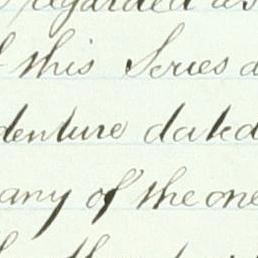 regarded as
this Series a
denture dated
any of the one